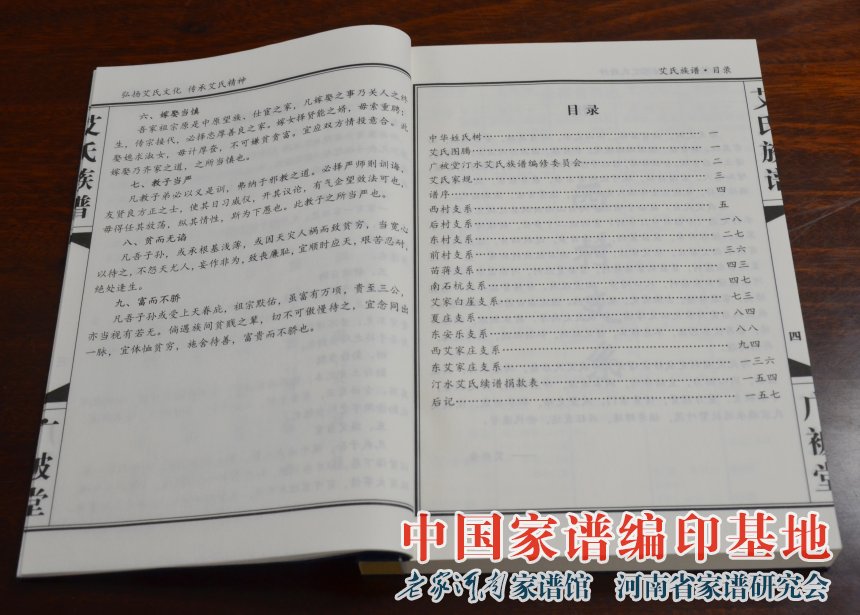 弘扬艾氏文化 传承艾氏精神
六、嫁娶当慎
吾家祖宗原是中原望族、仕宦之家，凡嫁娶之事乃关人之终
生，侍宗接代，必择忠厚善良之家。嫁女择贤能之婿，毋索重聘；
娶媳求淑女，毋计厚奁，不可嫌贫贪富。宜应双方情投意合。此
嫁娶乃齐家之道，之所当慎也。
七、教子当严
凡教子弟必以义是训，弗纳于邪教之道。必择严师则训诲，
友贤良方正之士，使其日习威仪，开其议论，有气企望效法可也，
毋得任其放荡，纵其情性，斯为下愚也。此教子之所当严也。
八、贫而无谄
凡吾子孙，或承根基浅薄，或因天灾人祸而致贫穷，当宽心
以待之，不怨天尤人，妄作非为，致丧廉耻，宜顺时应天，艰苦忍耐，
绝处逢生。
九、富而不骄
凡吾子孙或受上天眷庇，祖宗默佑，虽富有万顷，贵至三公，
亦当视有若无。倘遇族间贫贱之辈，切不可傲慢待之，宜念同出
一脉，宜体恤贫穷，施舍待善，富贵而不骄也。
艾氏族谱
广被堂
艾氏族谱·目录
目录
中华姓氏树……一
艾氏图腾……一
广被堂汀水艾氏族谱编修委员会……二
艾氏家规……三
谱序……四
西村支系……五
后村支系……一八
东村支系……二七
前村支系……三六
苗蒋支系……四三
南石杭支系……四七
艾家白崖支系……七三
夏庄支系……八四
东安乐支系……八八
西艾家庄支系……九四
东艾家庄支系……一三六
汀水艾氏续谱捐款表……一五四
后记……一五七
艾氏族谱
四
广被堂
中国家谱编印基地
老家河南家谱馆 河南省家谱研究会